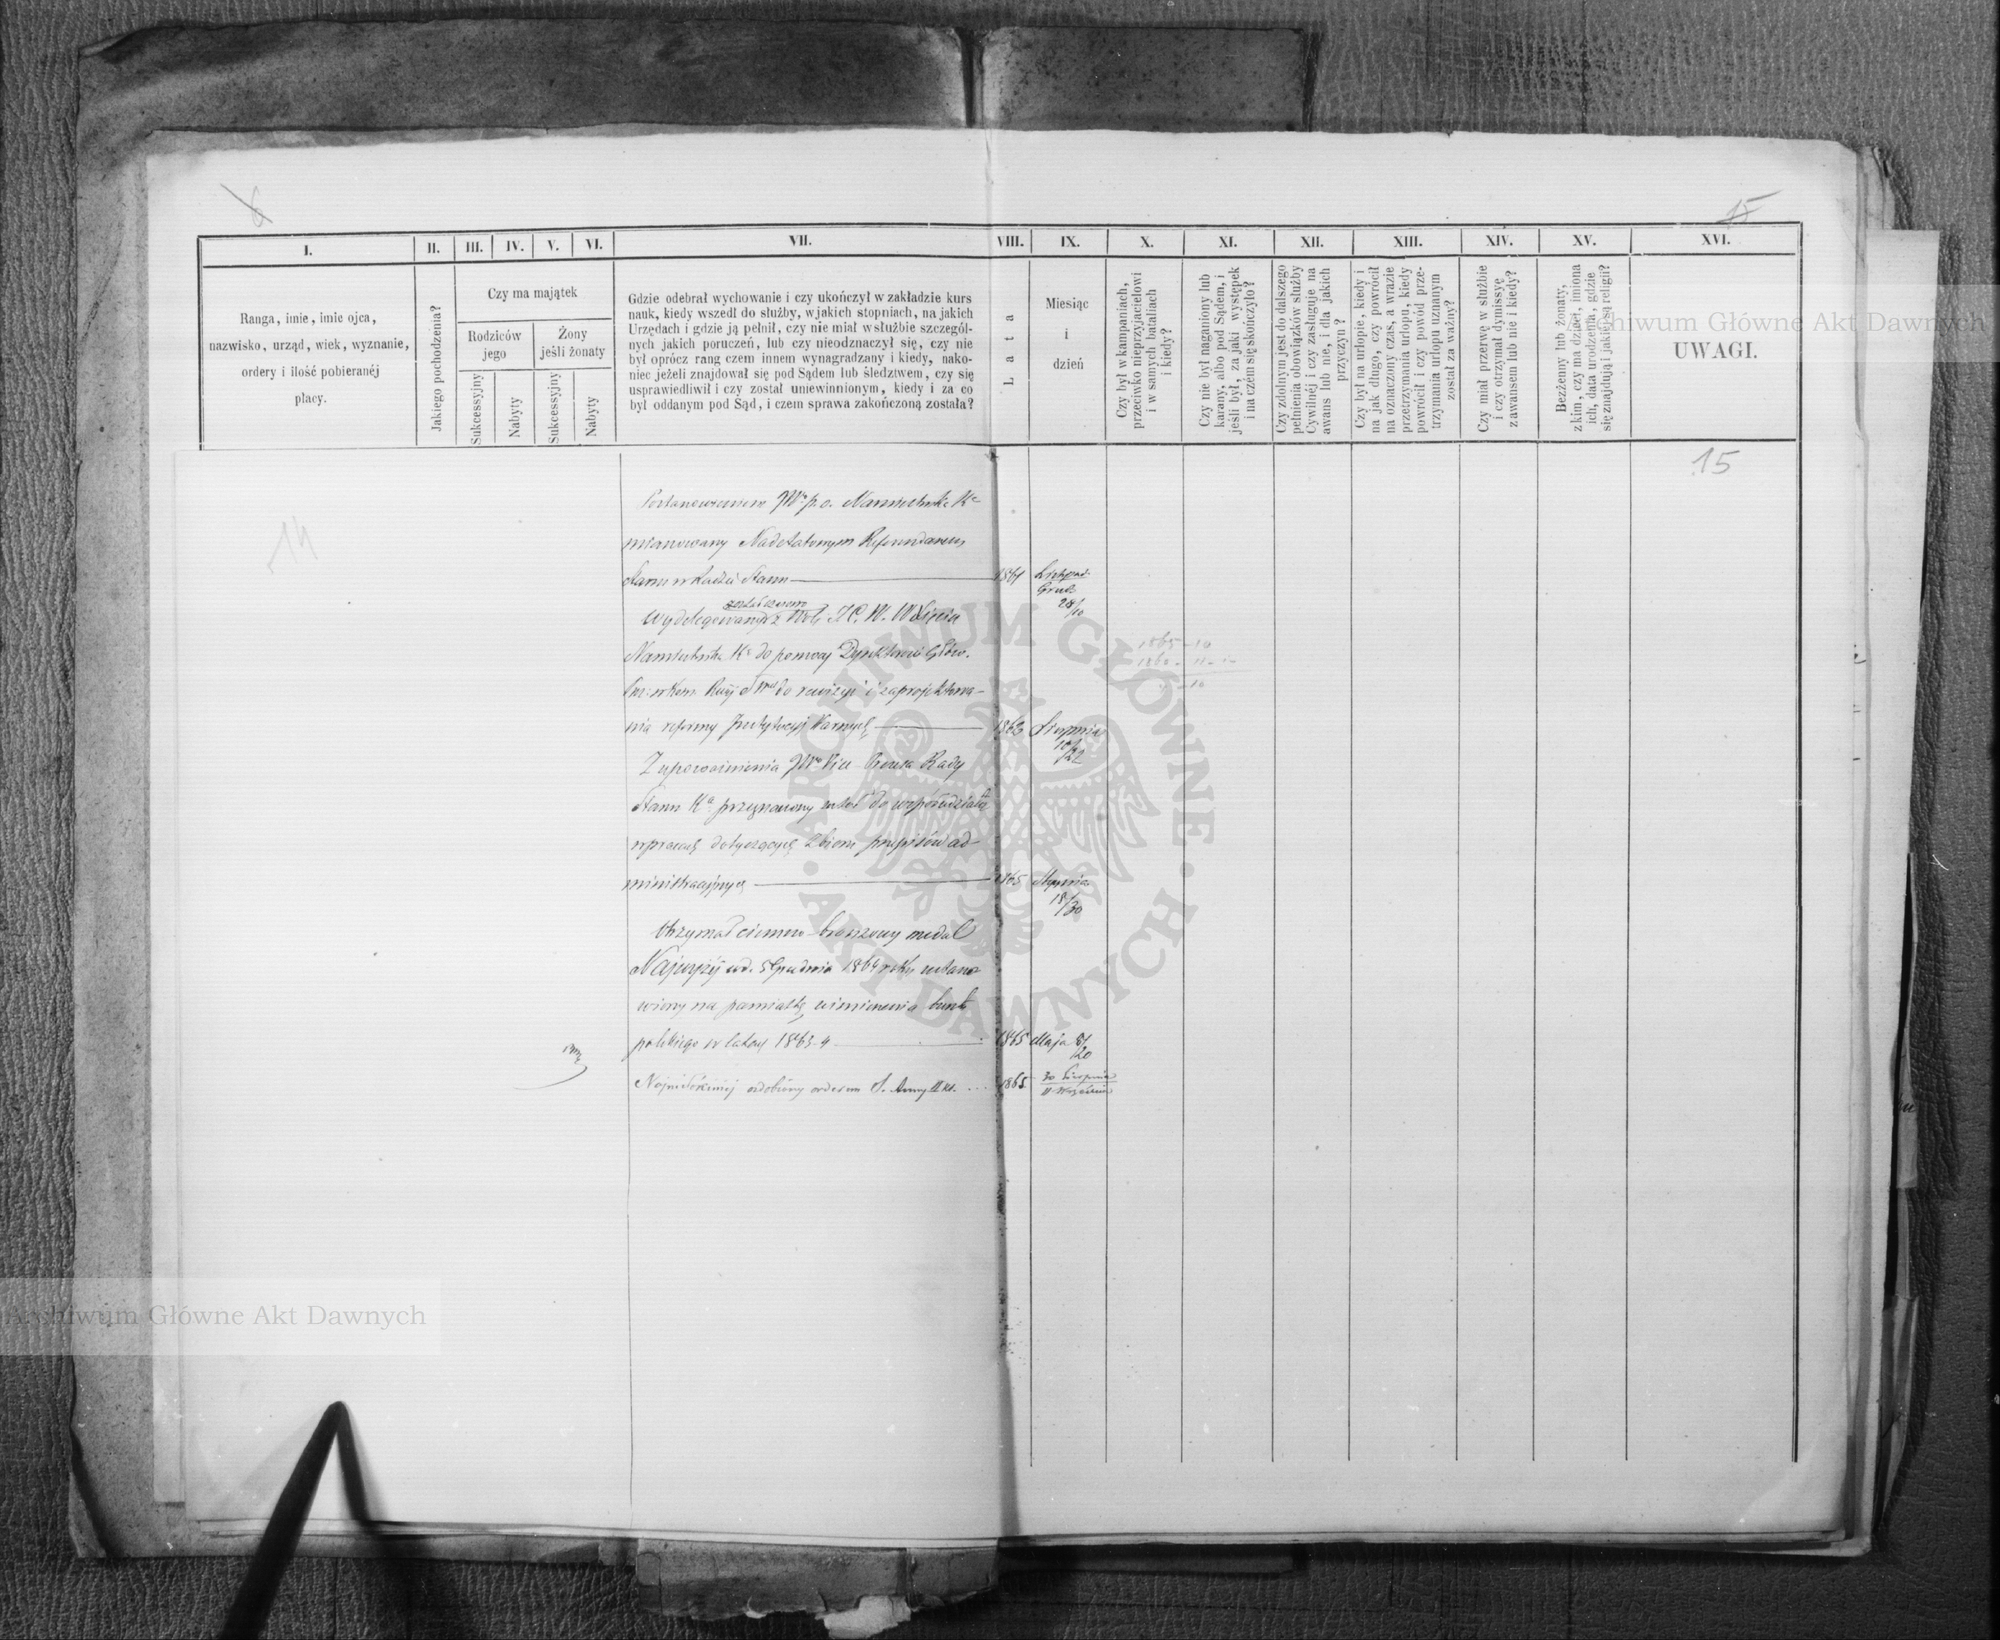 6
15
I.
II.
III.
IV.
V.
VI.
VII.
VIII.
IX.
X.
XI.
XII.
XIII.
XIV.
XV.
XVI.
Ranga, imie, imie ojca,
nazwisko, urząd, wiek, wyznanie,
ordery i ilość pobieranéj
płacy.
Jakiego pochodzenia?
Czy ma majątek
Rodziców
jego
Żony
jeśli żonaty
Sukcessyjny
Nabyty
Sukcessyjny
Nabyty
Gdzie odebrał wychowanie i czy ukończył w zakładzie kurs
nauk, kiedy wszedł do służby, w jakich stopniach, na jakich
Urzędach i gdzie ją pełnił, czy nie miał w służbie szczegól-
nych jakich poruczeń, lub czy nieodznaczył się, czy nie
był oprócz rang czem innem wynagradzany i kiedy, nako-
niec jeżeli znajdował się pod Sądem lub śledztwem, czy się
usprawiedliwił i czy został uniewinnionym, kiedy i za co
był oddanym pod Sąd, i czem sprawa zakończoną została?
Lata
Miesiąc
i
dzień
Czy był w kampaniach,
przeciwko nieprzyjacielowi
i w samych bataliach
i kiedy?
Czy nie był naganiony lub
karany, albo pod Sądem, i
jeśli był, za jaki występek
i na czém się skończyło?
Czy zdolnym jest do dalszego
pełnienia obowiązków służby
Cywilnéj i czy zasługuje na
awans lub nie, i dla jakich
przyczyn?
Czy był na urlopie, kiedy i
na jak długo, czy powrócił
na oznaczony czas, a w razie
przetrzymania urlopu, kiedy
powrócił i czy powód prze-
trzymania urlopu uznanym
został za ważny?
Czy miał przerwę w służbie
i czy otrzymał dymissyę
z awansem lub nie i kiedy?
Bezżenny lub żonaty,
z kim, czy ma dzieci, imiona
ich, data urodzenia, gdzie
się znajdują i jakiéj są religii?
UWAGI.
15
14
Postanowieniem JW° p. o. Namiestnika K°
mianowany Nadetatowym Referendarzem
Stanu w Radzie Stanu 1861 Listopad
Grud
28/10
został czasowo
Wydelegowany z Woli J. C. W. W Xięcia
Namiestnika K° do pomocy Dyrektorowi Głów.
Prez: w Kom. Rząd S do rewizyi i zaprojektowa-
nia reformy Instytucyj Karnych 1862 Sierpnia
10/22
Z upoważnienia JW° Vice Prezesa Rady
Stanu K° przeznaczony został do współudziału
w pracach dotyczących Zbioru przepisów ad-
ministracyjnych 1865 Stycznia
18/30
Otrzymał ciemno-bronzowy medal
Najwyżéj ud. Grudnia 1864 roku ustano
wiony na pamiątkę uśmierzenia buntu
polskiego w latach 1863-4 1865 Maja 8/20
Najmiłościwiéj ozdobiony orderem S. Anny II kl. 1865 30 Sierpnia
11 Września
1865 - 10
Archiwum Główne Akt Dawnych
Archiwum Główne Akt Dawnych
ARCHIWUM GŁÓWNE · AKT DAWNYCH ·